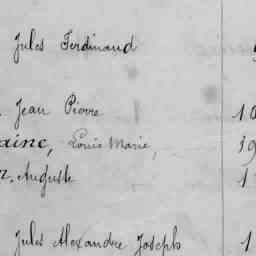 Jules Ferdinand
Jean Pierre 10
aine, Louis Marie, 39
r. Auguste 1
Jules Alexandre Joseph 1